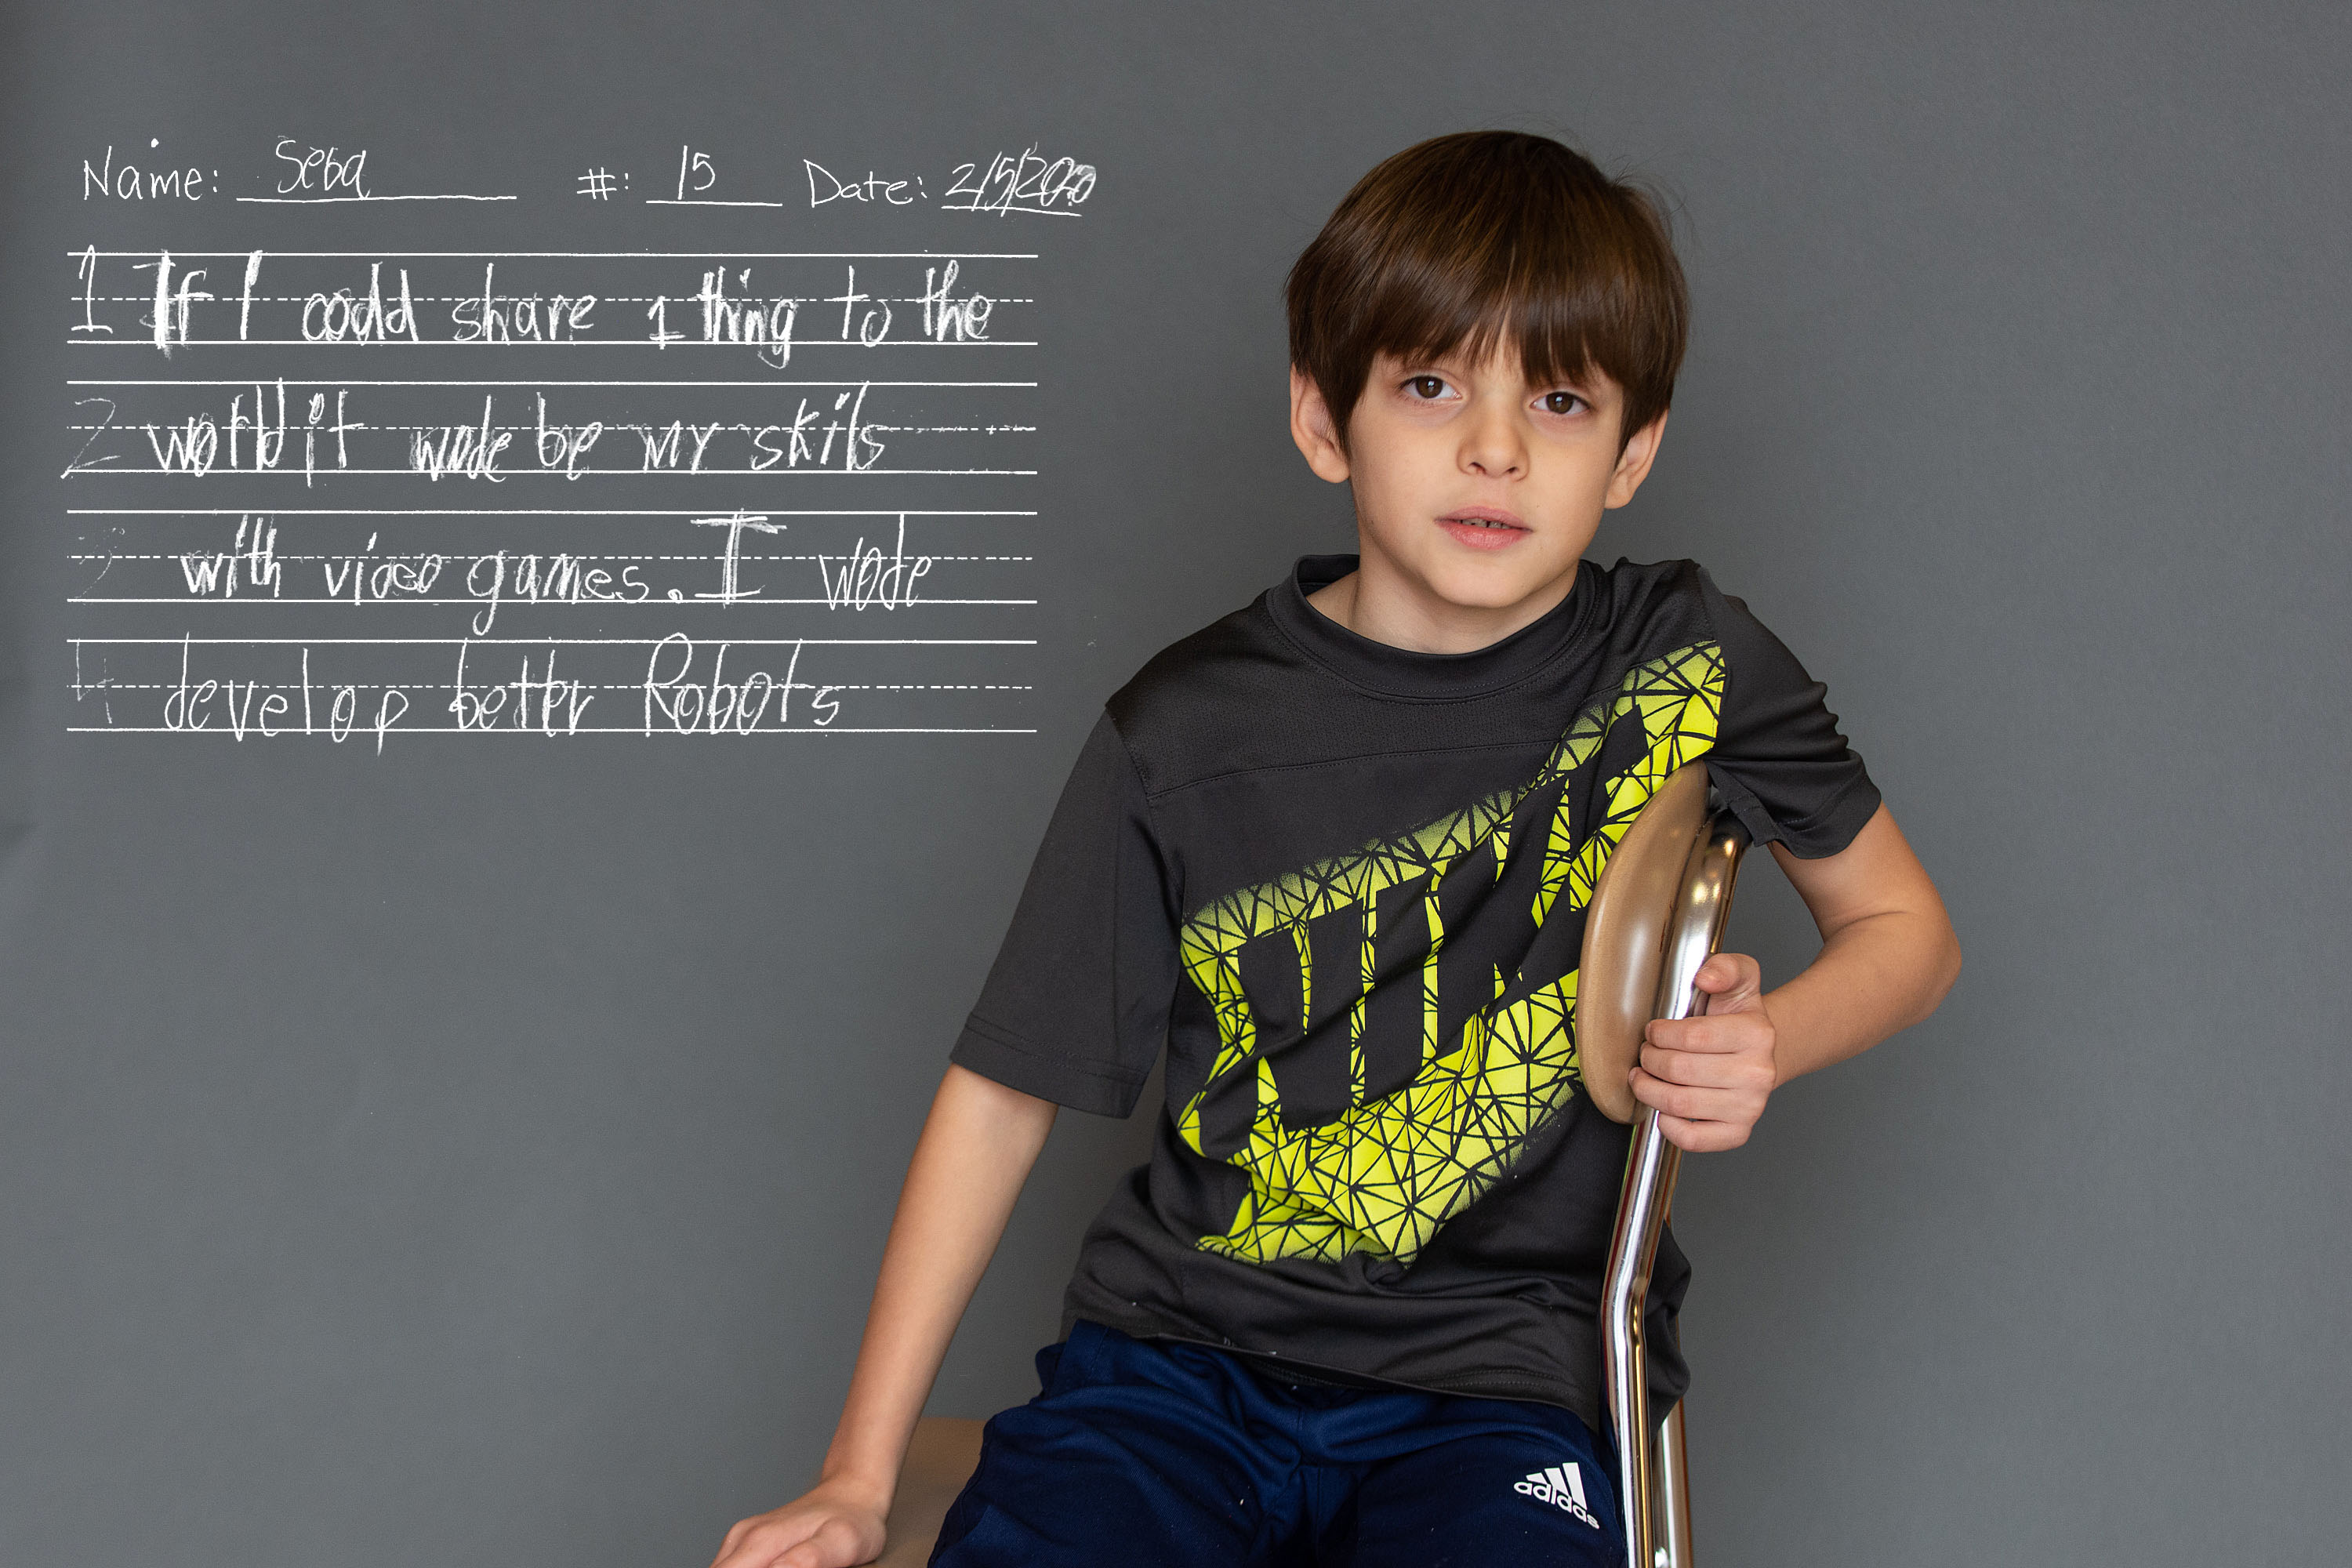 Name: Seba #: 15 Date: 2/5/2020
1 If I codd share 1 thing to the
2 world it wode be my skils
3 with video games. I wode
4 develop better Robots
adidas